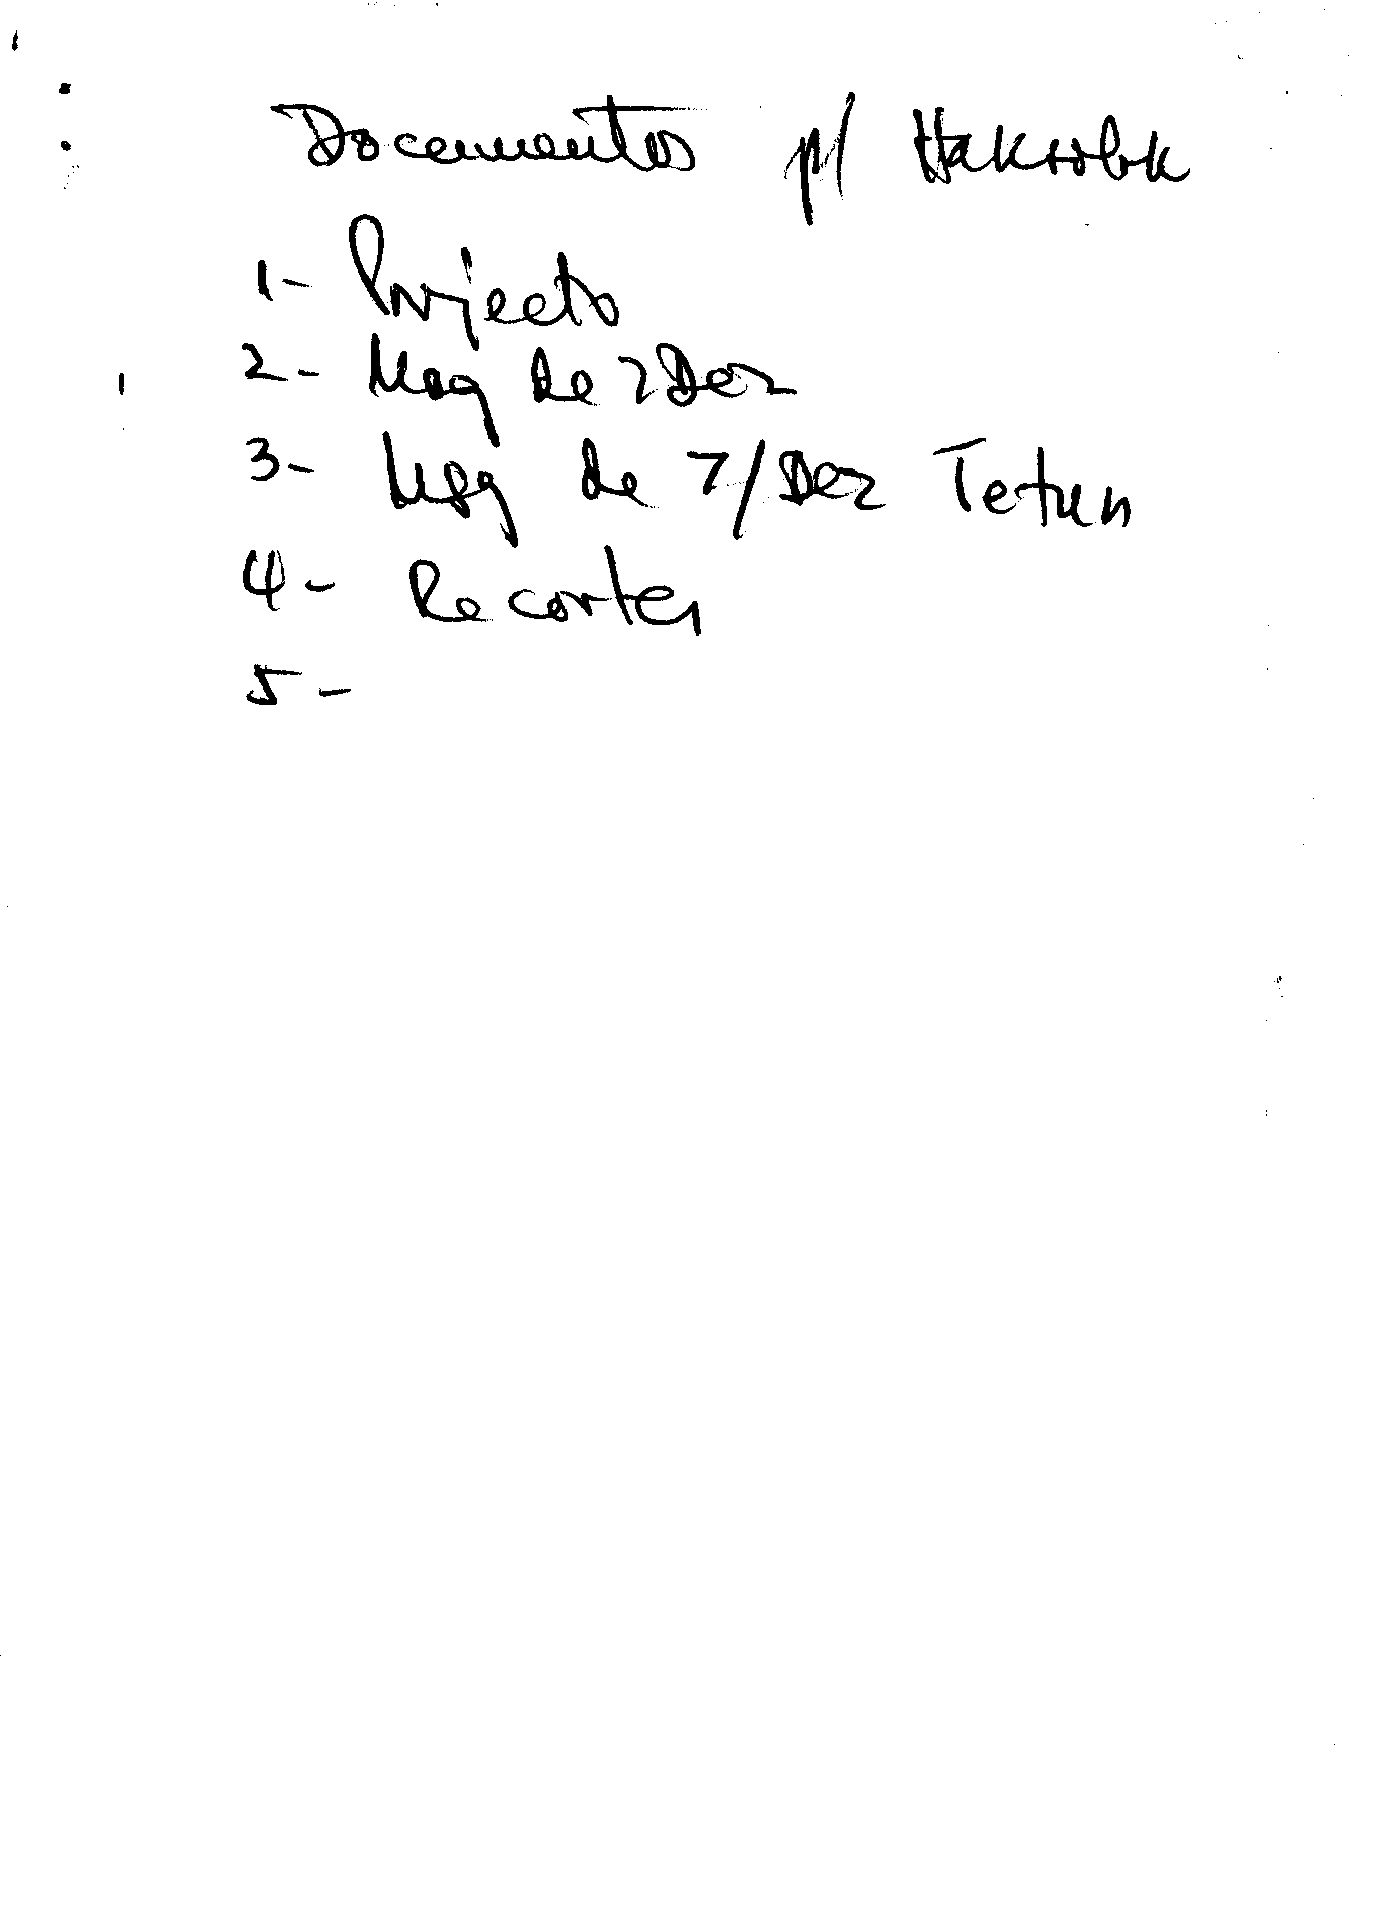 Documentos p/ Haksolok
1- Projecto
2- Msg de 7 Dez
3- Msg de 7/Dez Tetun
4- Recortes
5-